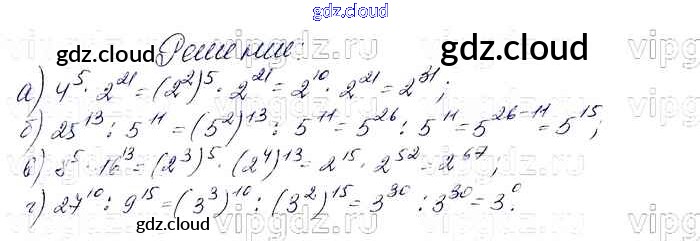 gdz.cloud
Решение:
gdz.cloud
gdz.cloud
а) 4⁵ · 2²¹ = (2²)⁵ · 2²¹ = 2¹⁰ · 2²¹ = 2³¹;
б) 25¹³ : 5¹¹ = (5²)¹³ : 5¹¹ = 5²⁶ : 5¹¹ = 5²⁶⁻¹¹ = 5¹⁵;
в) 8⁵ · 16¹³ = (2³)⁵ · (2⁴)¹³ = 2¹⁵ · 2⁵² = 2⁶⁷;
г) 27¹⁰ : 9¹⁵ = (3³)¹⁰ : (3²)¹⁵ = 3³⁰ : 3³⁰ = 3⁰.
gdz.cloud